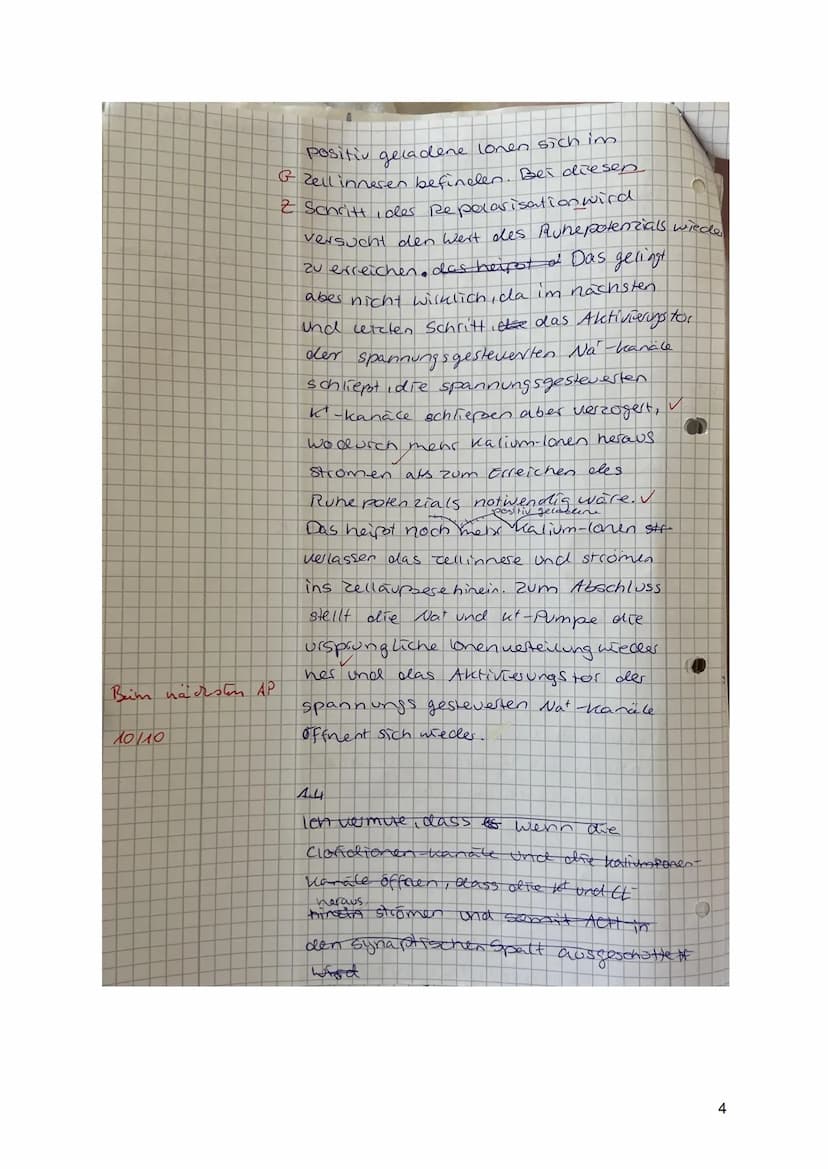 positiv geladene Ionen sich im
G Zellinneren befinden. Bei diesen
Z Schritt, der Repolarisation wird
versucht den Wert des Ruhepotenzials wieder
zu erreichen. das heißt d Das gelingt
aber nicht wirklich, da im nächsten
und letzten Schritt, das Aktivierungstor
der spannungsgesteuerten Na⁺-kanäle
schließt, die spannungsgesteuerten
K⁺-kanäle schließen aber verzögert, ✓
wodurch mehr Kalium-Ionen heraus
strömen als zum Erreichen des
Ruhepotenzials notwendig wäre. ✓
positiv geladene
Das heißt noch mehr Kalium-Ionen str
verlassen das Zellinnere und strömen
ins Zelläußere hinein. Zum Abschluss
stellt die Na⁺ und K⁺-Pumpe die
ursprüngliche Ionenverteilung wieder
her und das Aktivierungstor der
Beim nächsten AP
spannungsgesteuerten Na⁺-kanäle
10/10
öffnent sich wieder.
1.4
Ich vermute, dass es wenn die
Cloridionen-kanäle und die kaliumionen-
kanäle öffnen, dass die K⁺ und Cl⁻
heraus
hinein strömen und somit ACH in
den synaptischen Spalt ausgeschüttet
wird
4